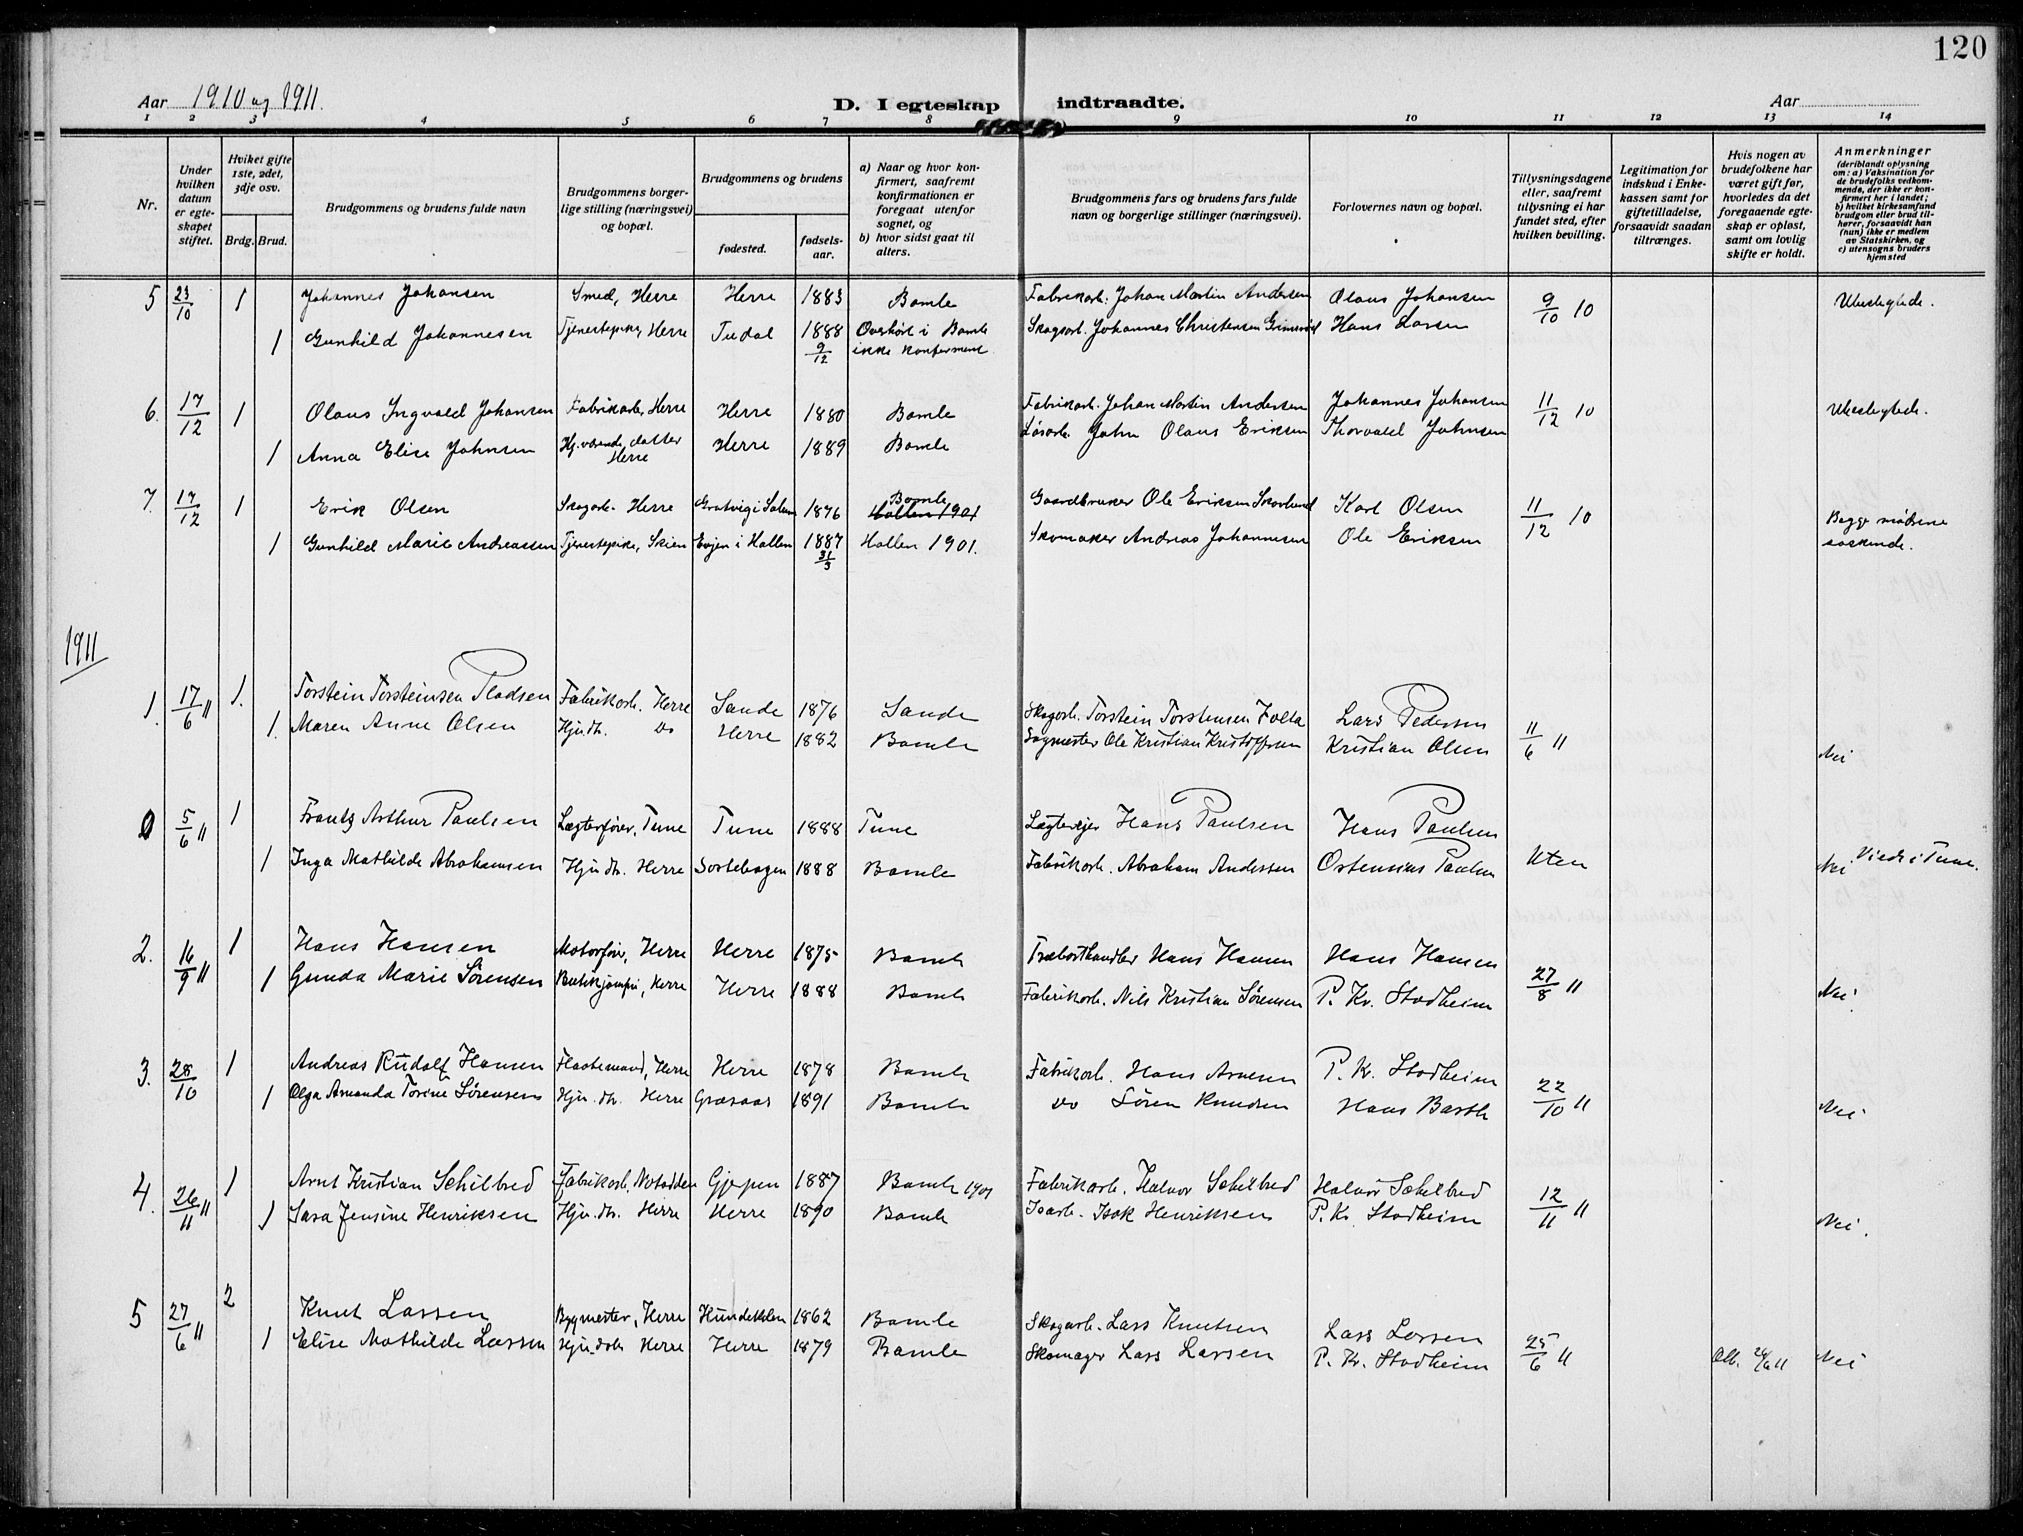 120
Aar 1910 og 1911.
D. I egteskap indtraadte.
Aar
1 2 3 4 5 6 7 8 9 10 11 12 13 14
Nr.
Under hvilken datum er egteskapet stiftet.
Hviket gifte 1ste, 2det, 3dje osv.
Brdg. Brud.
Brudgommens og brudens fulde navn
Brudgommens borgerlige stilling (næringsvei) og bopæl.
Brudgommens og brudens
fødested.
fødselsaar.
a) Naar og hvor konfirmert, saafremt konfirmationen er foregaat utenfor sognet, og
b) hvor sidst gaat til alters.
Brudgommens fars og brudens fars fulde navn og borgerlige stillinger (næringsvei).
Forlovernes navn og bopæl.
Tillysningsdagene eller, saafremt tillysning ei har fundet sted, efter hvilken bevilling.
Legitimation for indskud i Enkekassen samt for giftetilladelse, forsaavidt saadan tiltrænges.
Hvis nogen av brudefolkene har været gift før, hvorledes da det foregaaende egteskap er opløst, samt om lovlig skifte er holdt.
Anmerkninger (deriblandt oplysning om: a) Vaksination for de brudefolks vedkommende, der ikke er konfirmert her i landet; b) hvilket kirkesamfund brudgom eller brud tilhører, forsaavidt han (hun) ikke er medlem av Statskirken, og c) utensogns bruders hjemsted
5 23/10 1 Johannes Johansen Smed, Herre Herre 1883 Bamle Fabrikarb. Johan Martin Andersen Olaus Johansen 9/10 10 Ubeslegtede.
1 Gunhild Johannesen Tjenestepike, Herre Tudal 1888 9/12 Overhørt i Bamle ikke konfirment Skogsarb. Johannes Christensen Hans Larsen
6. 17/12 1 Olaus Ingvald Johansen Fabrikarb, Herre Herre 1880 Bamle Fabrikarb. Johan Martin Andersen Johannes Johansen 11/12 10 Ubeslegtede.
1 Anna Elise Johnsen Hj. værende datter Herre Herre 1889 Bamle Løsarb. John Olaus Eriksen Thorvald Johnsen
7. 17/12 1 Erik Olsen Skogarb. Herre Gratvig i Solum 1876 Bamle Hollen 1901 Gaardbruker Ole Eriksen Karl Olsen 11/12 10 Begge mødrene søskende.
1 Gunhild Marie Andreassen Tjenestepike, Skien Eojen i Hollen 1887 31/3 Hollen 1901. Skomaker Andreas Johannesen Ole Eriksen
1911
1. 17/6 11 1. Torstein Torsteinsen Pladsen Fabrikarb. Herre Sande 1876 Sande Skogarb. Torstein Torstensen Lars Pedersen 11/6 11
1. Maren Anne Olsen Hju. dtr. Do Herre 1882 Bamle Sagmester Ole Kristian Kristoffersen Kristian Olsen Nei
0 5/6 11 1 Frantz Arthur Paulsen Lægterfører, Tune Tune 1888 Tune Lægtereier Hans Paulsen Hans Paulsen Uten
1 Inga Mathilde Abrahamsen Hju dtr. Herre Sortebogen 1888 Bamle Fabrikarb. Abraham Anderssen Ostensius Paulsen Nei Viedr i Tune.
2. 16/9 11 1 Hans Hansen Motorfør, Herre Herre 1875 Bamle Trælasthandler Hans Hansen Hans Hansen 27/8 11
1 Gunda Marie Sørensen Butikjomfru, Herre Herre 1888 Bamle Fabrikarb. Nils Kristian Sørensen P. Kr. Stodheim Nei.
3. 28/10 1 Andreas Rudolf Hansen Flaatemand, Herre Herre 1878 Bamle Fabrikarb. Hans Arnesen P. K. Stodheim 22/10 11
1 Olga Amanda Torine Sørensen Hju. dtr. Herre Grasaas 1891 Bamle Do Søren Knudsen Hans Barth Nei
4. 26/11 11 1 Arnt Kristian Schilbred Fabrikarb, Notodden Gjerpen 1887 Bamle 1901 Fabrikarb. Halvor Schilbred Halvor Schilbred 12/11 11
1 Sara Jensine Henriksen Hju. dtr. Herre Herre 1890 Bamle Isarb. Isak Henriksen P. Kr. Stodheim Nei.
5 27/6 11 2 Knut Larsen Bygmester, Herre Hundekelen 1862 Bamle Skogarb. Lars Knutsen Lars Larsen 25/6 11
1 Elise Mathilde Larsen Hju. datr Herre Herre 1879 Bamle Skomager Lars Larsen P. Kr. Stodheim Nei